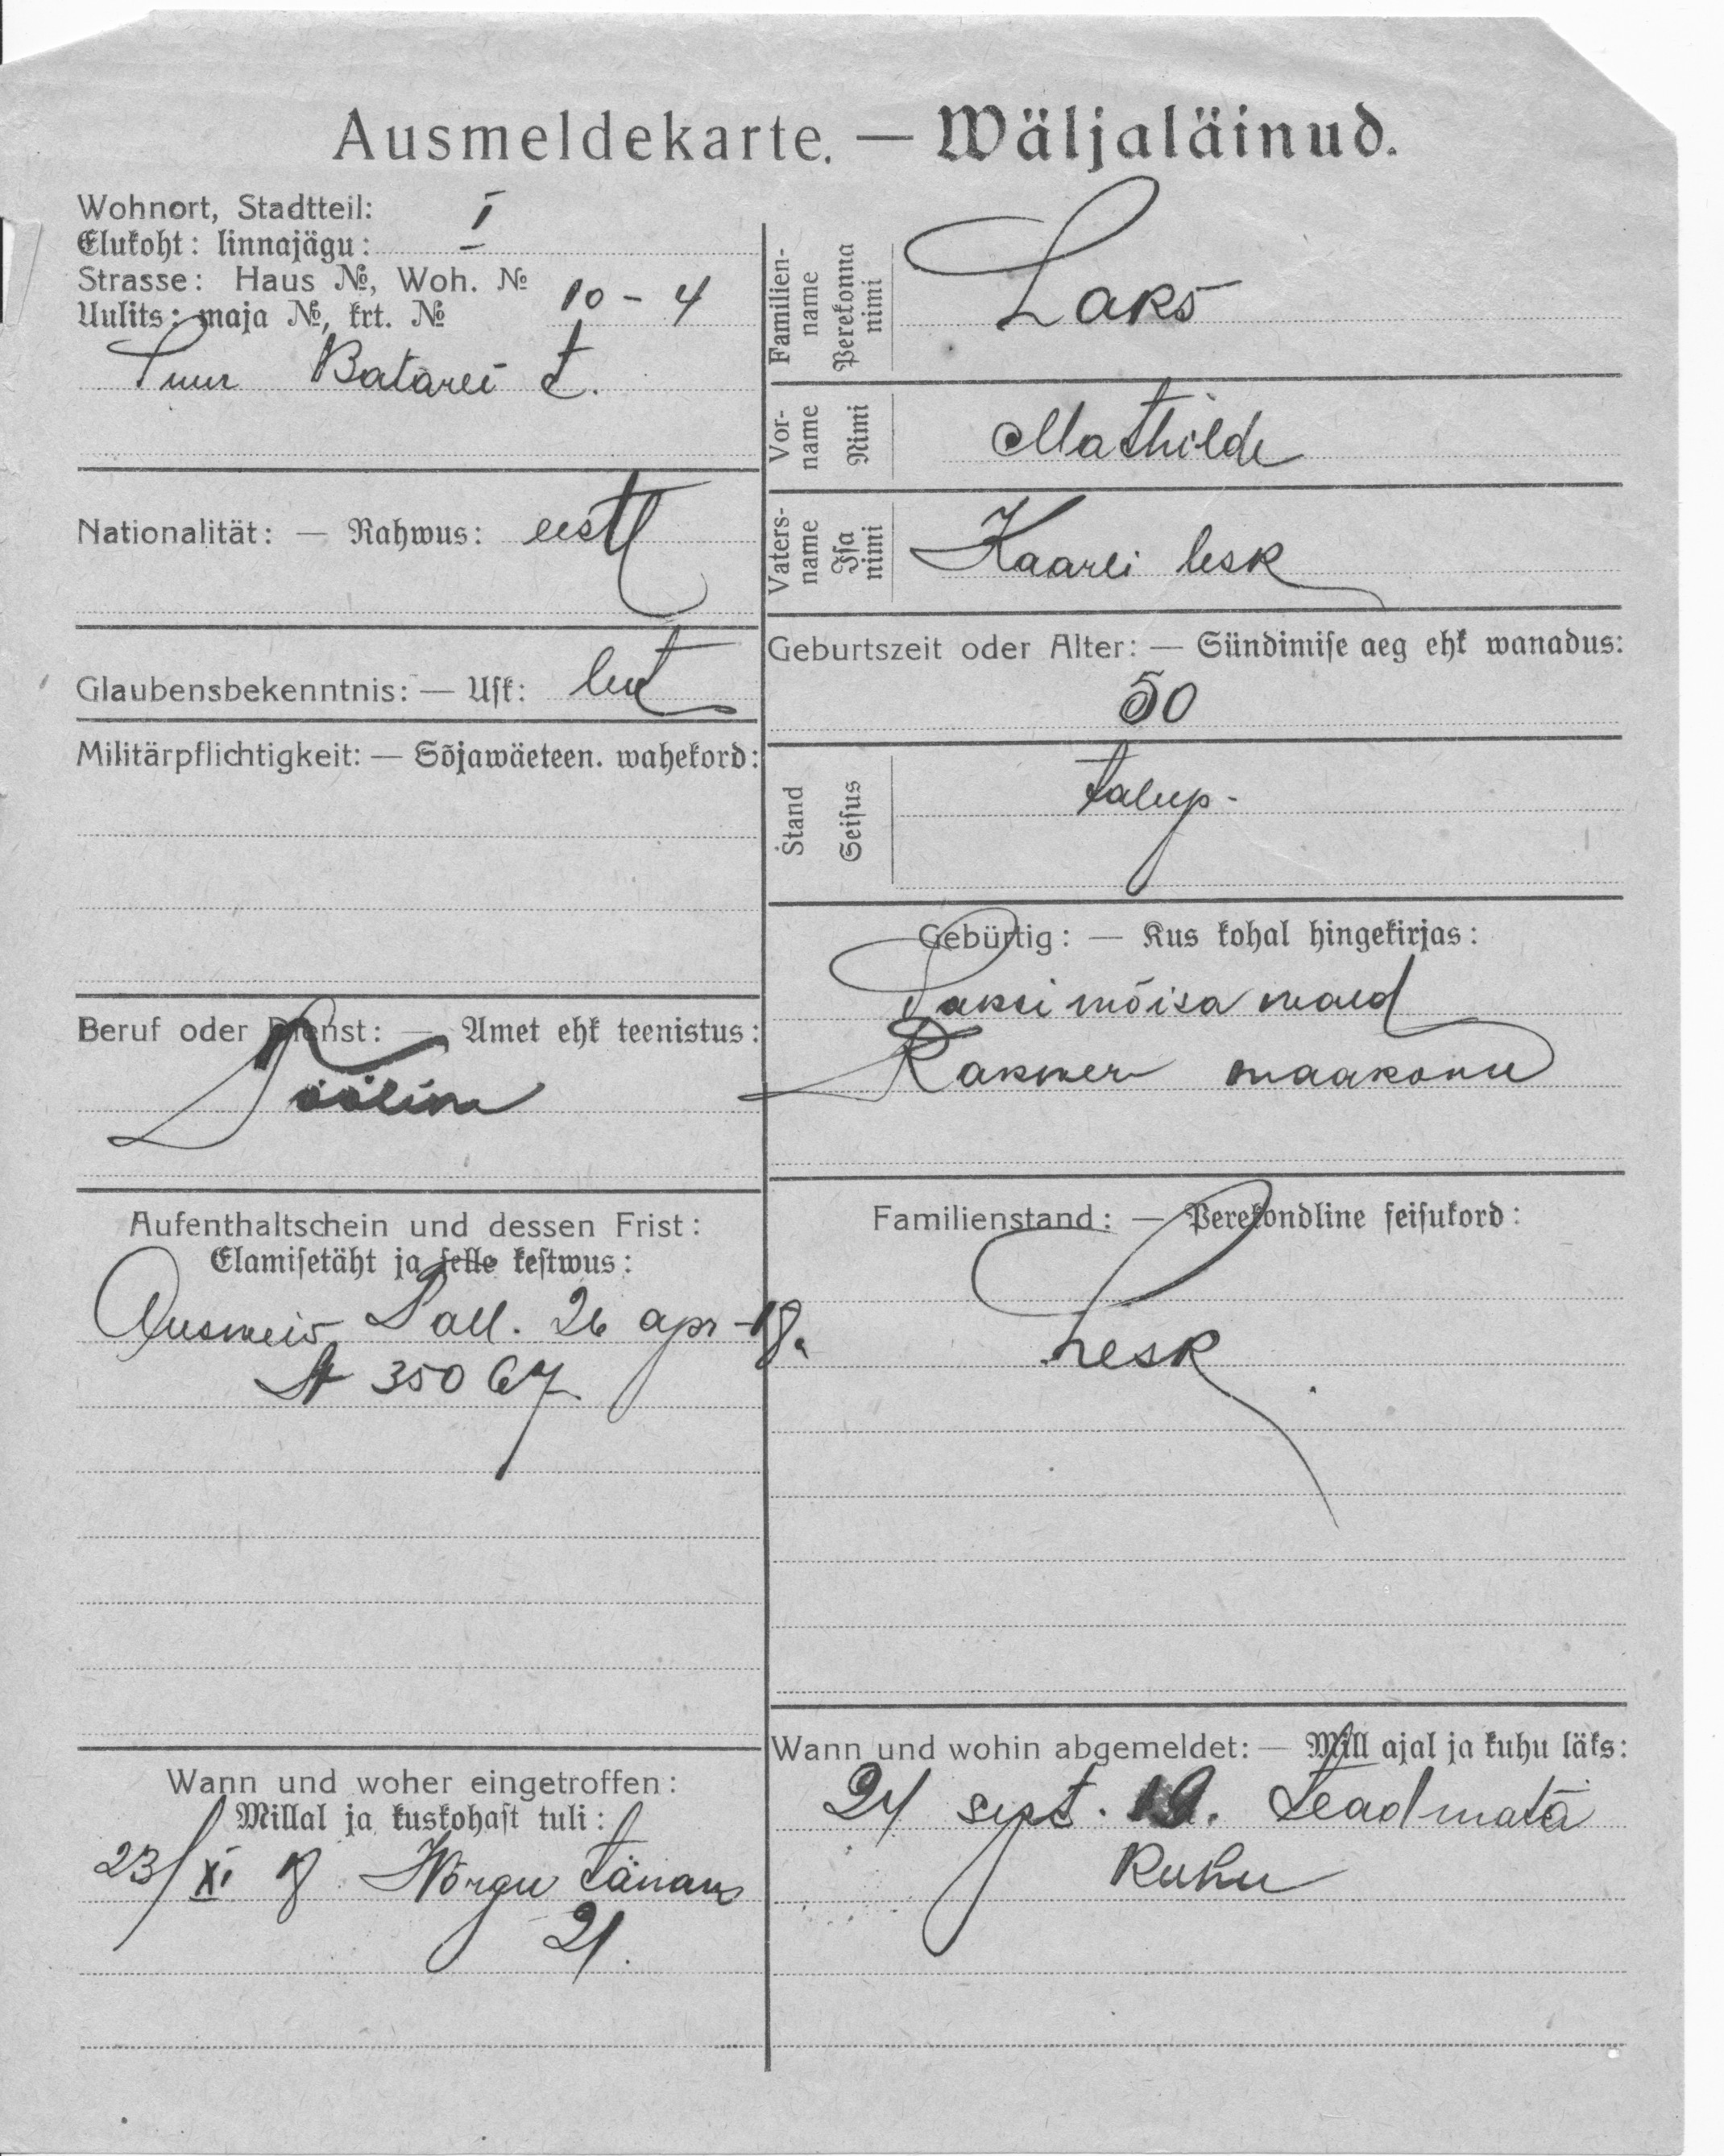 Ausmeldekarte. — Wäljaläinud.
Wohnort, Stadtteil: I
Elukoht: linnajägu:
Strasse: Haus №, Woh. № 10 - 4
Uulits: maja №, krt. №
Suur Batarei t.
Nationalität: — Rahwus: eestl
Glaubensbekenntnis: — Usk: lut
Militärpflichtigkeit: — Sõjawäeteen. wahekord:
Beruf oder Dienst: — Amet ehk teenistus:
Tööline
Aufenthaltschein und dessen Frist:
Elamisetäht ja selle kestwus:
Ausweis Tall. 26 apr - 18.
A 35067
Wann und woher eingetroffen:
Millal ja kuskohast tuli:
23/XI 18 Wõrgu tänaw
21.
Familien-
name
Perekonna
nimi
Laks
Vor-
name
Nimi
Mathilde
Vaters-
name
Isa
nimi
Kaarli lesk
Geburtszeit oder Alter: — Sündimise aeg ehk wanadus:
50
Stand
Seisus
talup-
Gebürtig: — Kus kohal hingekirjas:
mõisa wald
Rakwere maakonu
Familienstand: — Perekondline seisukord:
Lesk
Wann und wohin abgemeldet: — Mill ajal ja kuhu läks:
24 sept. 19. teadmata
kuhu